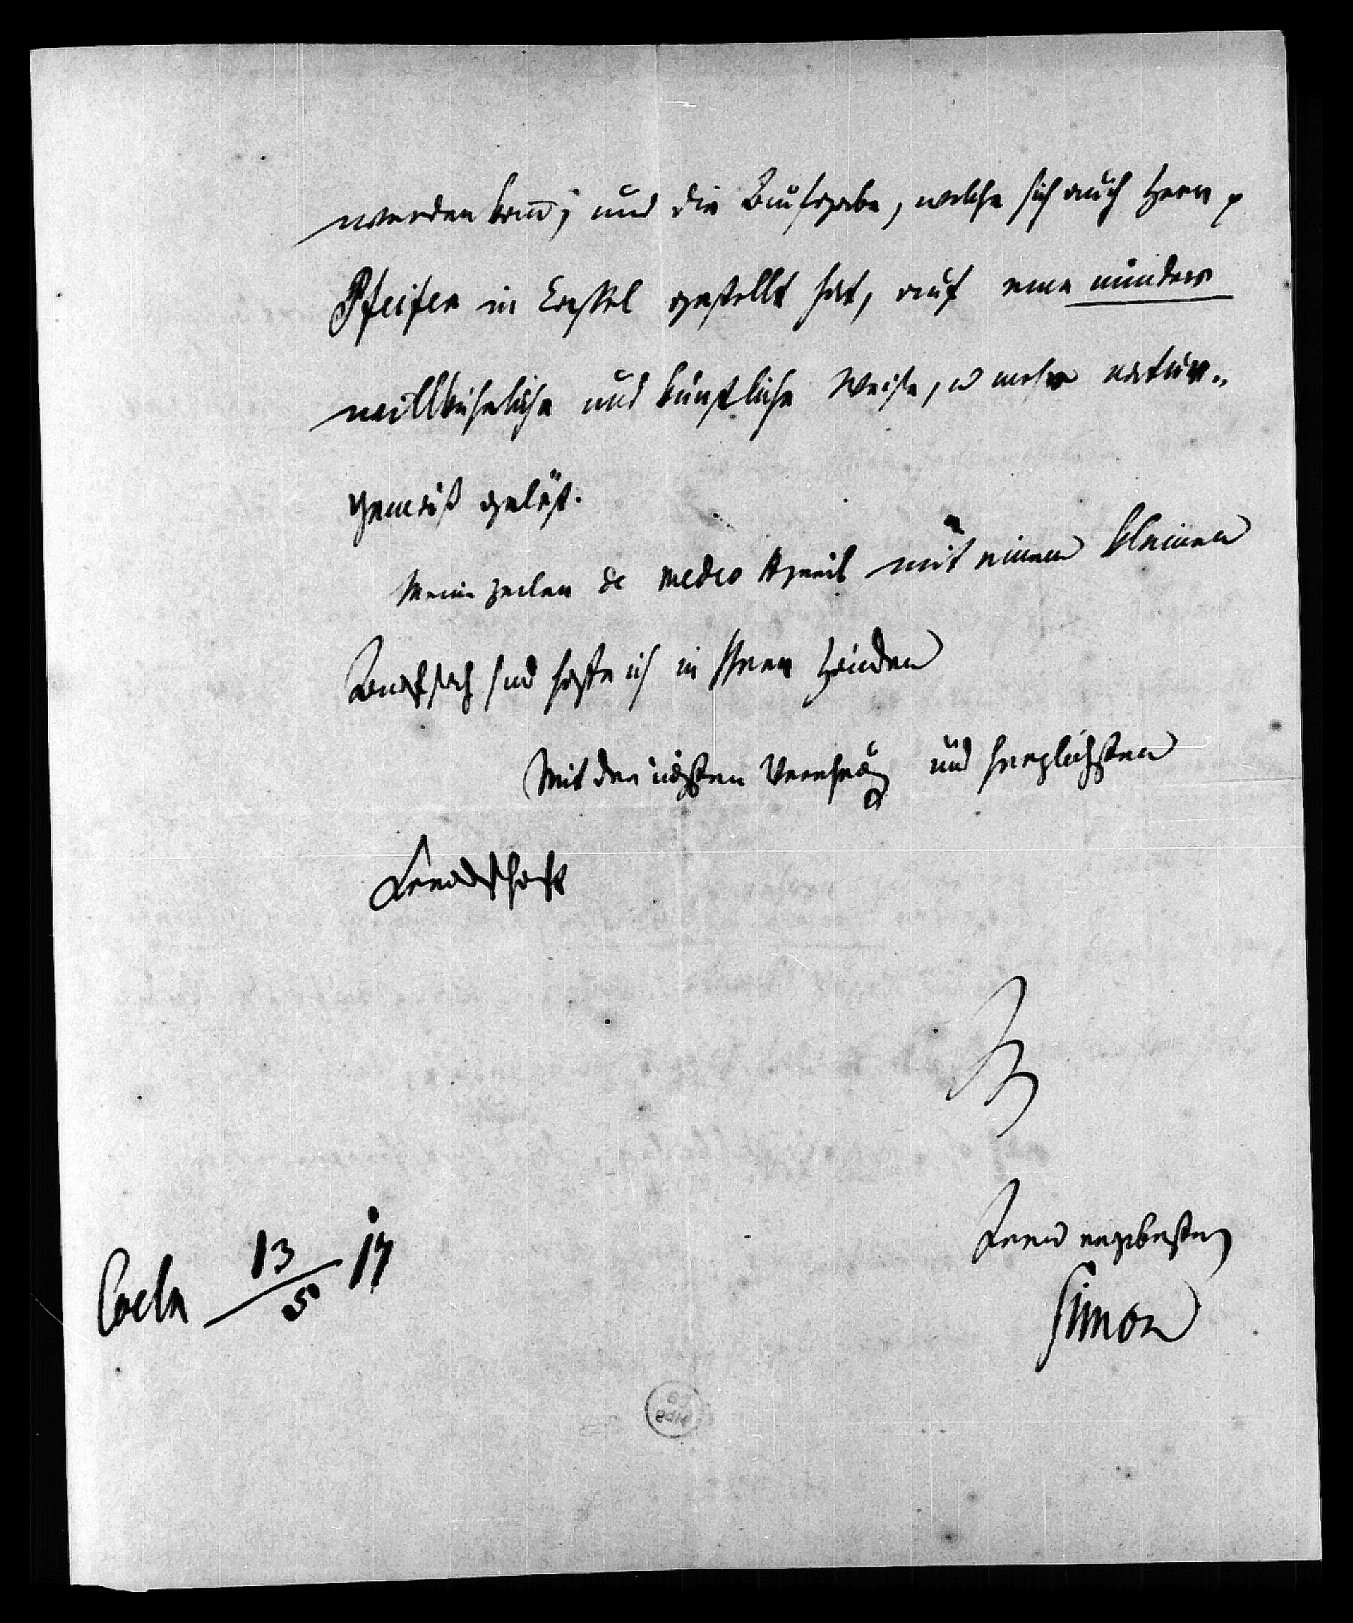 werden kann; und die Aufgabe, welche sich auch Herr
Pfeifer in Cassel gestellt hat, auf eine minder
willkührliche und künstliche Weise, u mehr natur-
gemäß gelöst.
Meine Zeilen de medio April mit einem kleinen
sind hoffe ich in Ihren Händen
Mit der Verehrung und herzlichsten
Freundschaft
Ihr
Freund ergebenster
Simon
Coeln 13/5 17